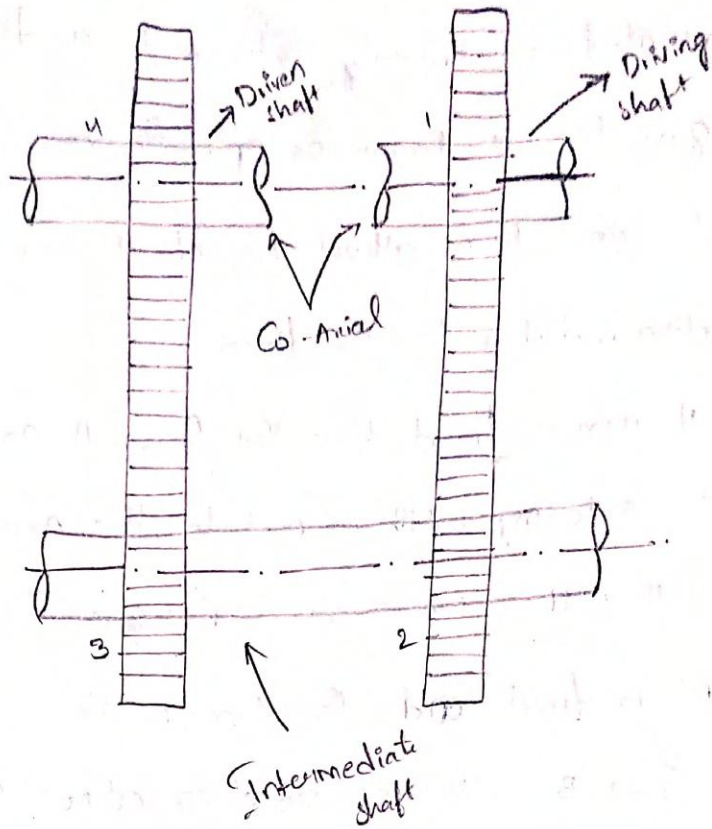 Driven
shaft
4
1
Driving
shaft
Co-Axial
3
2
Intermediate
shaft